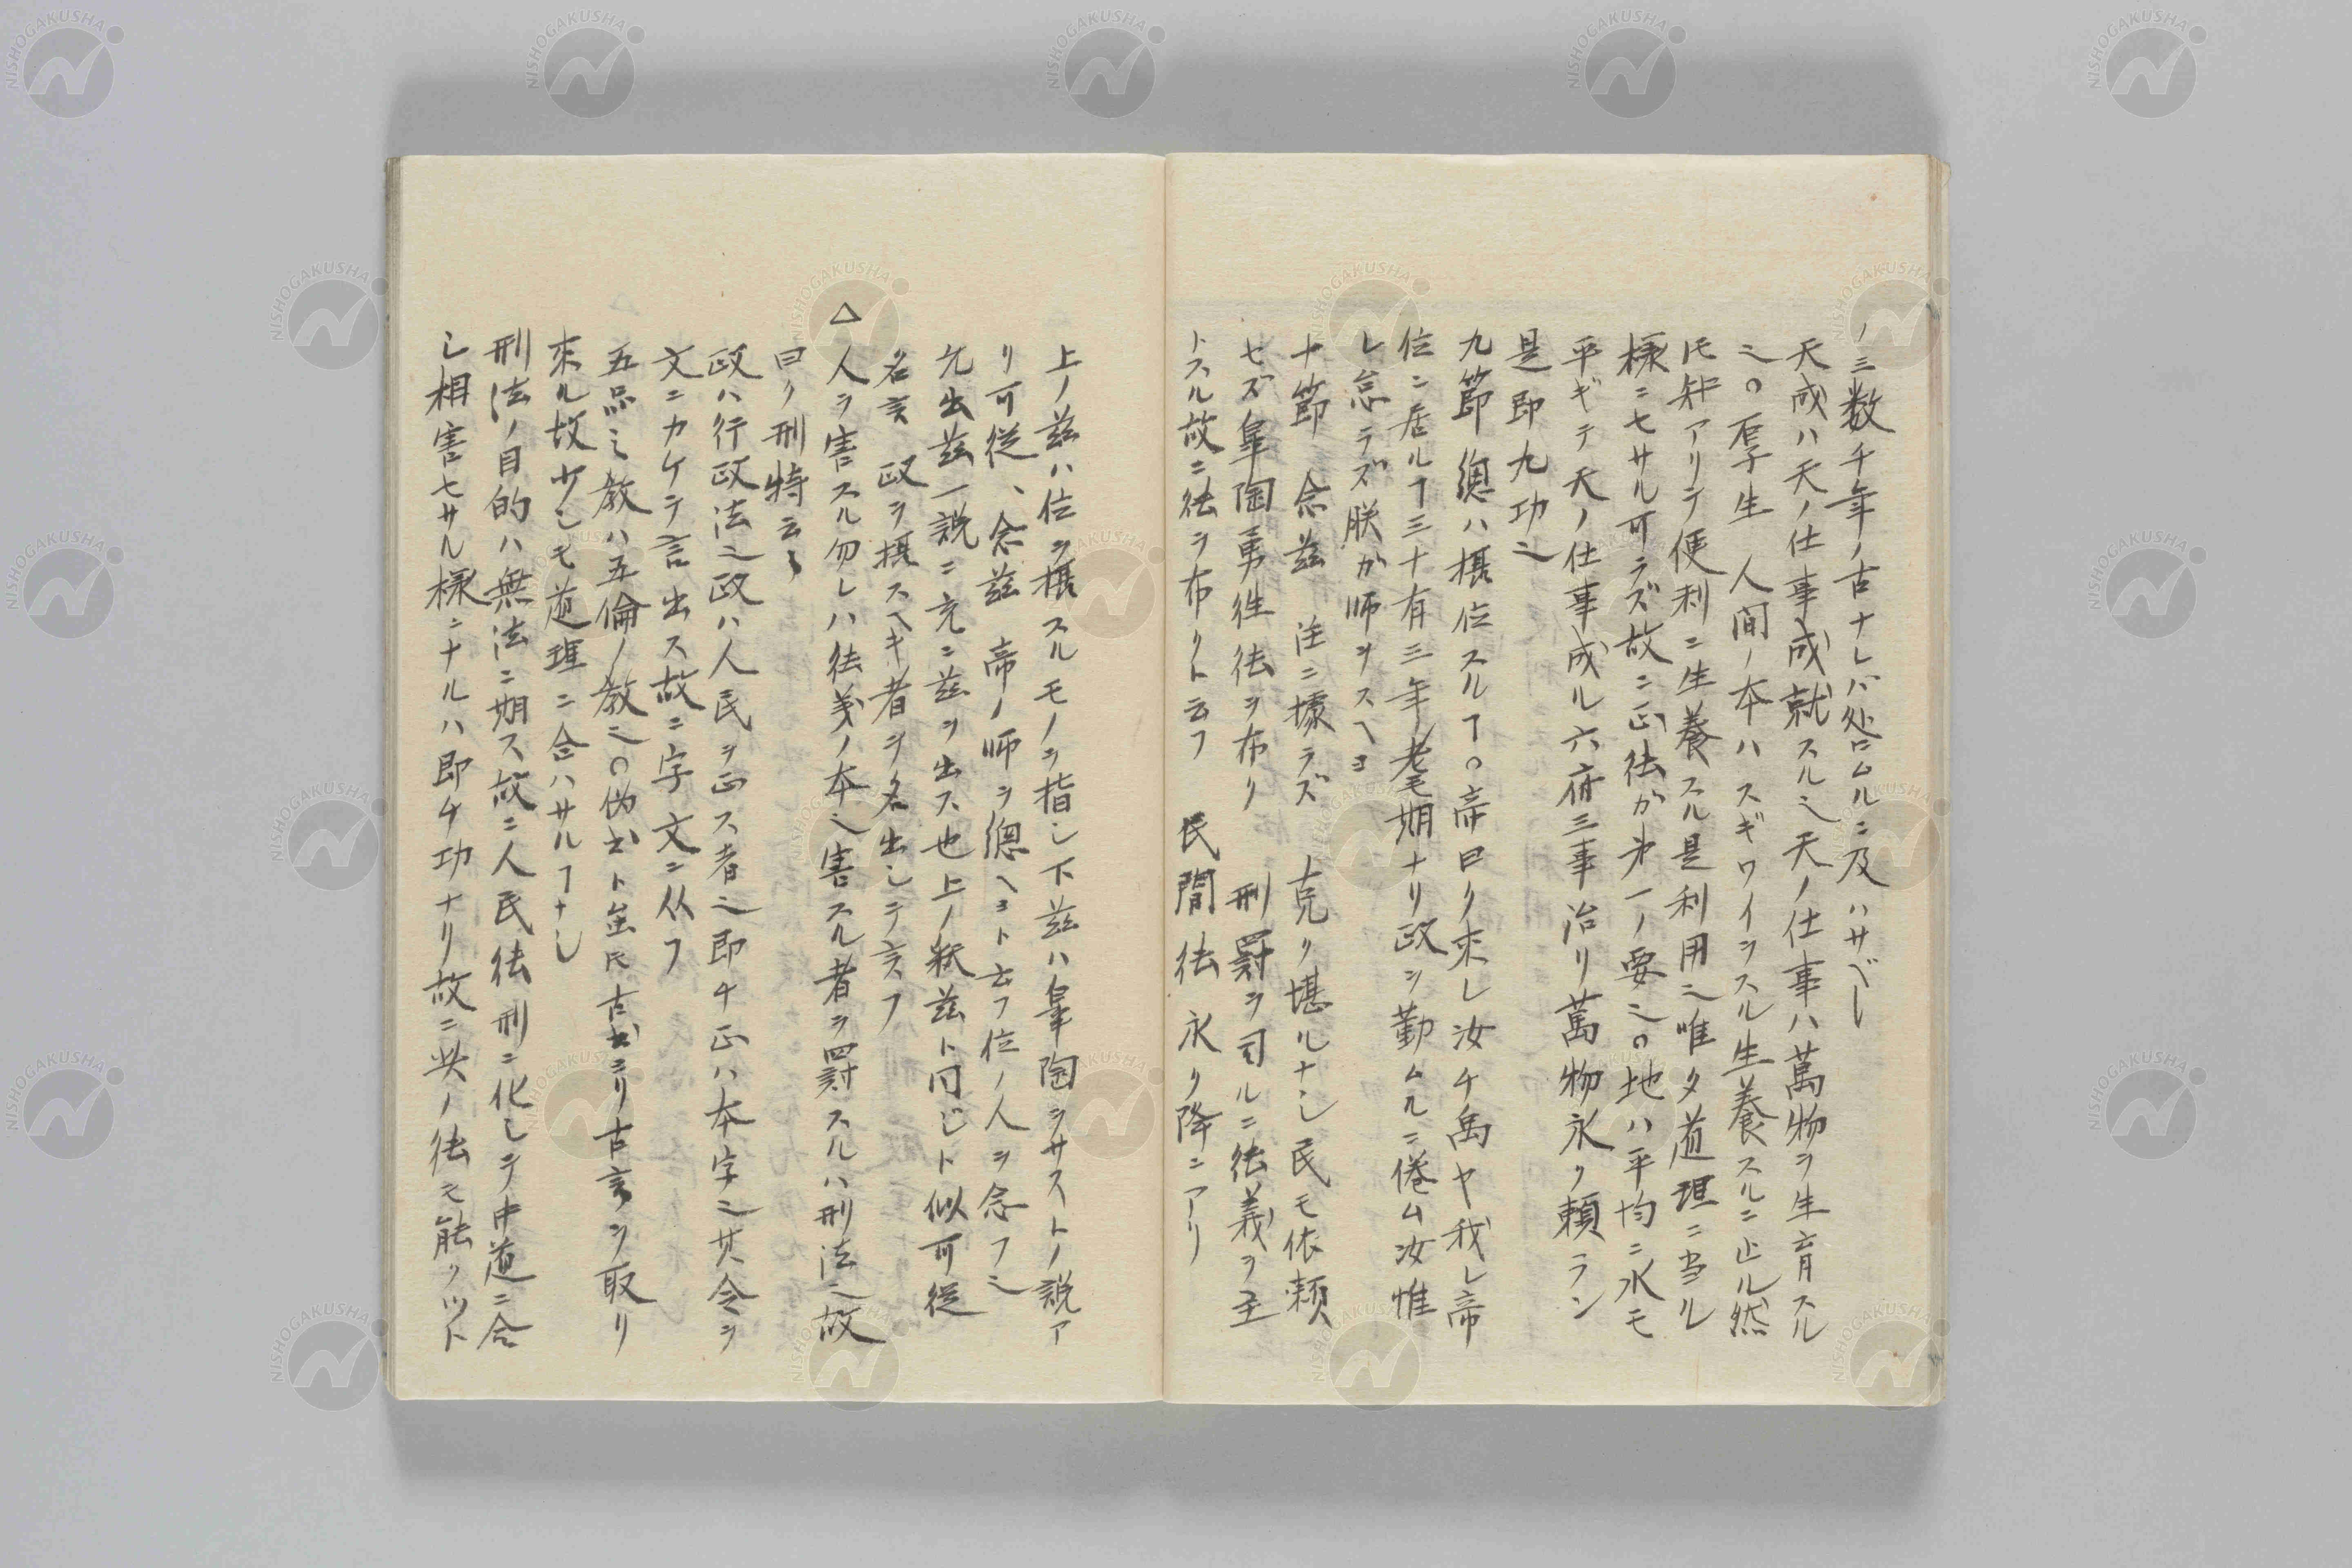 ノ三数千年ノ古ナレバ咎ムルニ及ハサベシ
天成ハ天ノ仕事成就スル也天ノ仕事ハ萬物ヲ生育スル
也○厚生 人間ノ本ハスギワイヲスル生養スルニ止ル然
𪜈知アリテ便利ニ生養スル是利用也唯タ道理ニ当ル
様ニセサル可ラズ故ニ正徳が㐧一ノ要也○地ハ平均ニ水モ
平ギテ天ノ仕事成ル六府三事治リ萬物永ク頼ラン
是即九功也
九節 總ハ摂位スルヿ○帝曰ク来レ汝チ禹ヤ我レ帝
位ニ居ルヿ三十有三年耄期ナリ政ヲ勤ムルニ倦ム汝惟
レ怠ラズ朕が師ヲスヘヨ
十節 念茲 注ニ據ラズ 克ク堪ルナシ民モ依頼
セズ皐陶勇徃徳ヲ布ク 刑罰ヲ司ルニ徳義ヲ主
トスル故ニ徳ヲ布クト云フ 民間徳永ク降ニアリ
上ノ茲ハ位ヲ摂スルモノヲ指シ下茲ハ皐陶ヲサストノ説ア
リ可従、念茲 帝ノ師ヲ總ヘヨト云フ位ノ人ヲ念フ也
允出茲一説ニ充ニ茲ヲ出ス也上ノ釈茲ト同じト似可従
名言 政ヲ摂スヘキ者ヲ名出シテ言フ
△人ヲ害スル勿レハ徳義ノ本也害スル者ヲ罰スルハ刑法也故
曰ク刑特云〻
政ハ行政法也政ハ人民ヲ正ス者也即チ正ハ本字也其令ヲ
文ニカケテ言出ス故ニ字文ニ从フ
五品ノ教ハ五倫ノ教也○偽書ト虽𪜈古書ヨリ古言ヲ取リ
来ル故少シモ道理ニ合ハサルヿナシ
刑法ノ目的ハ無法ニ期ス故ニ人民徳刑ニ化シテ中道ニ合
シ相害セサル様ニナルハ即チ功ナリ故ニ央ノ徳モ能クツト